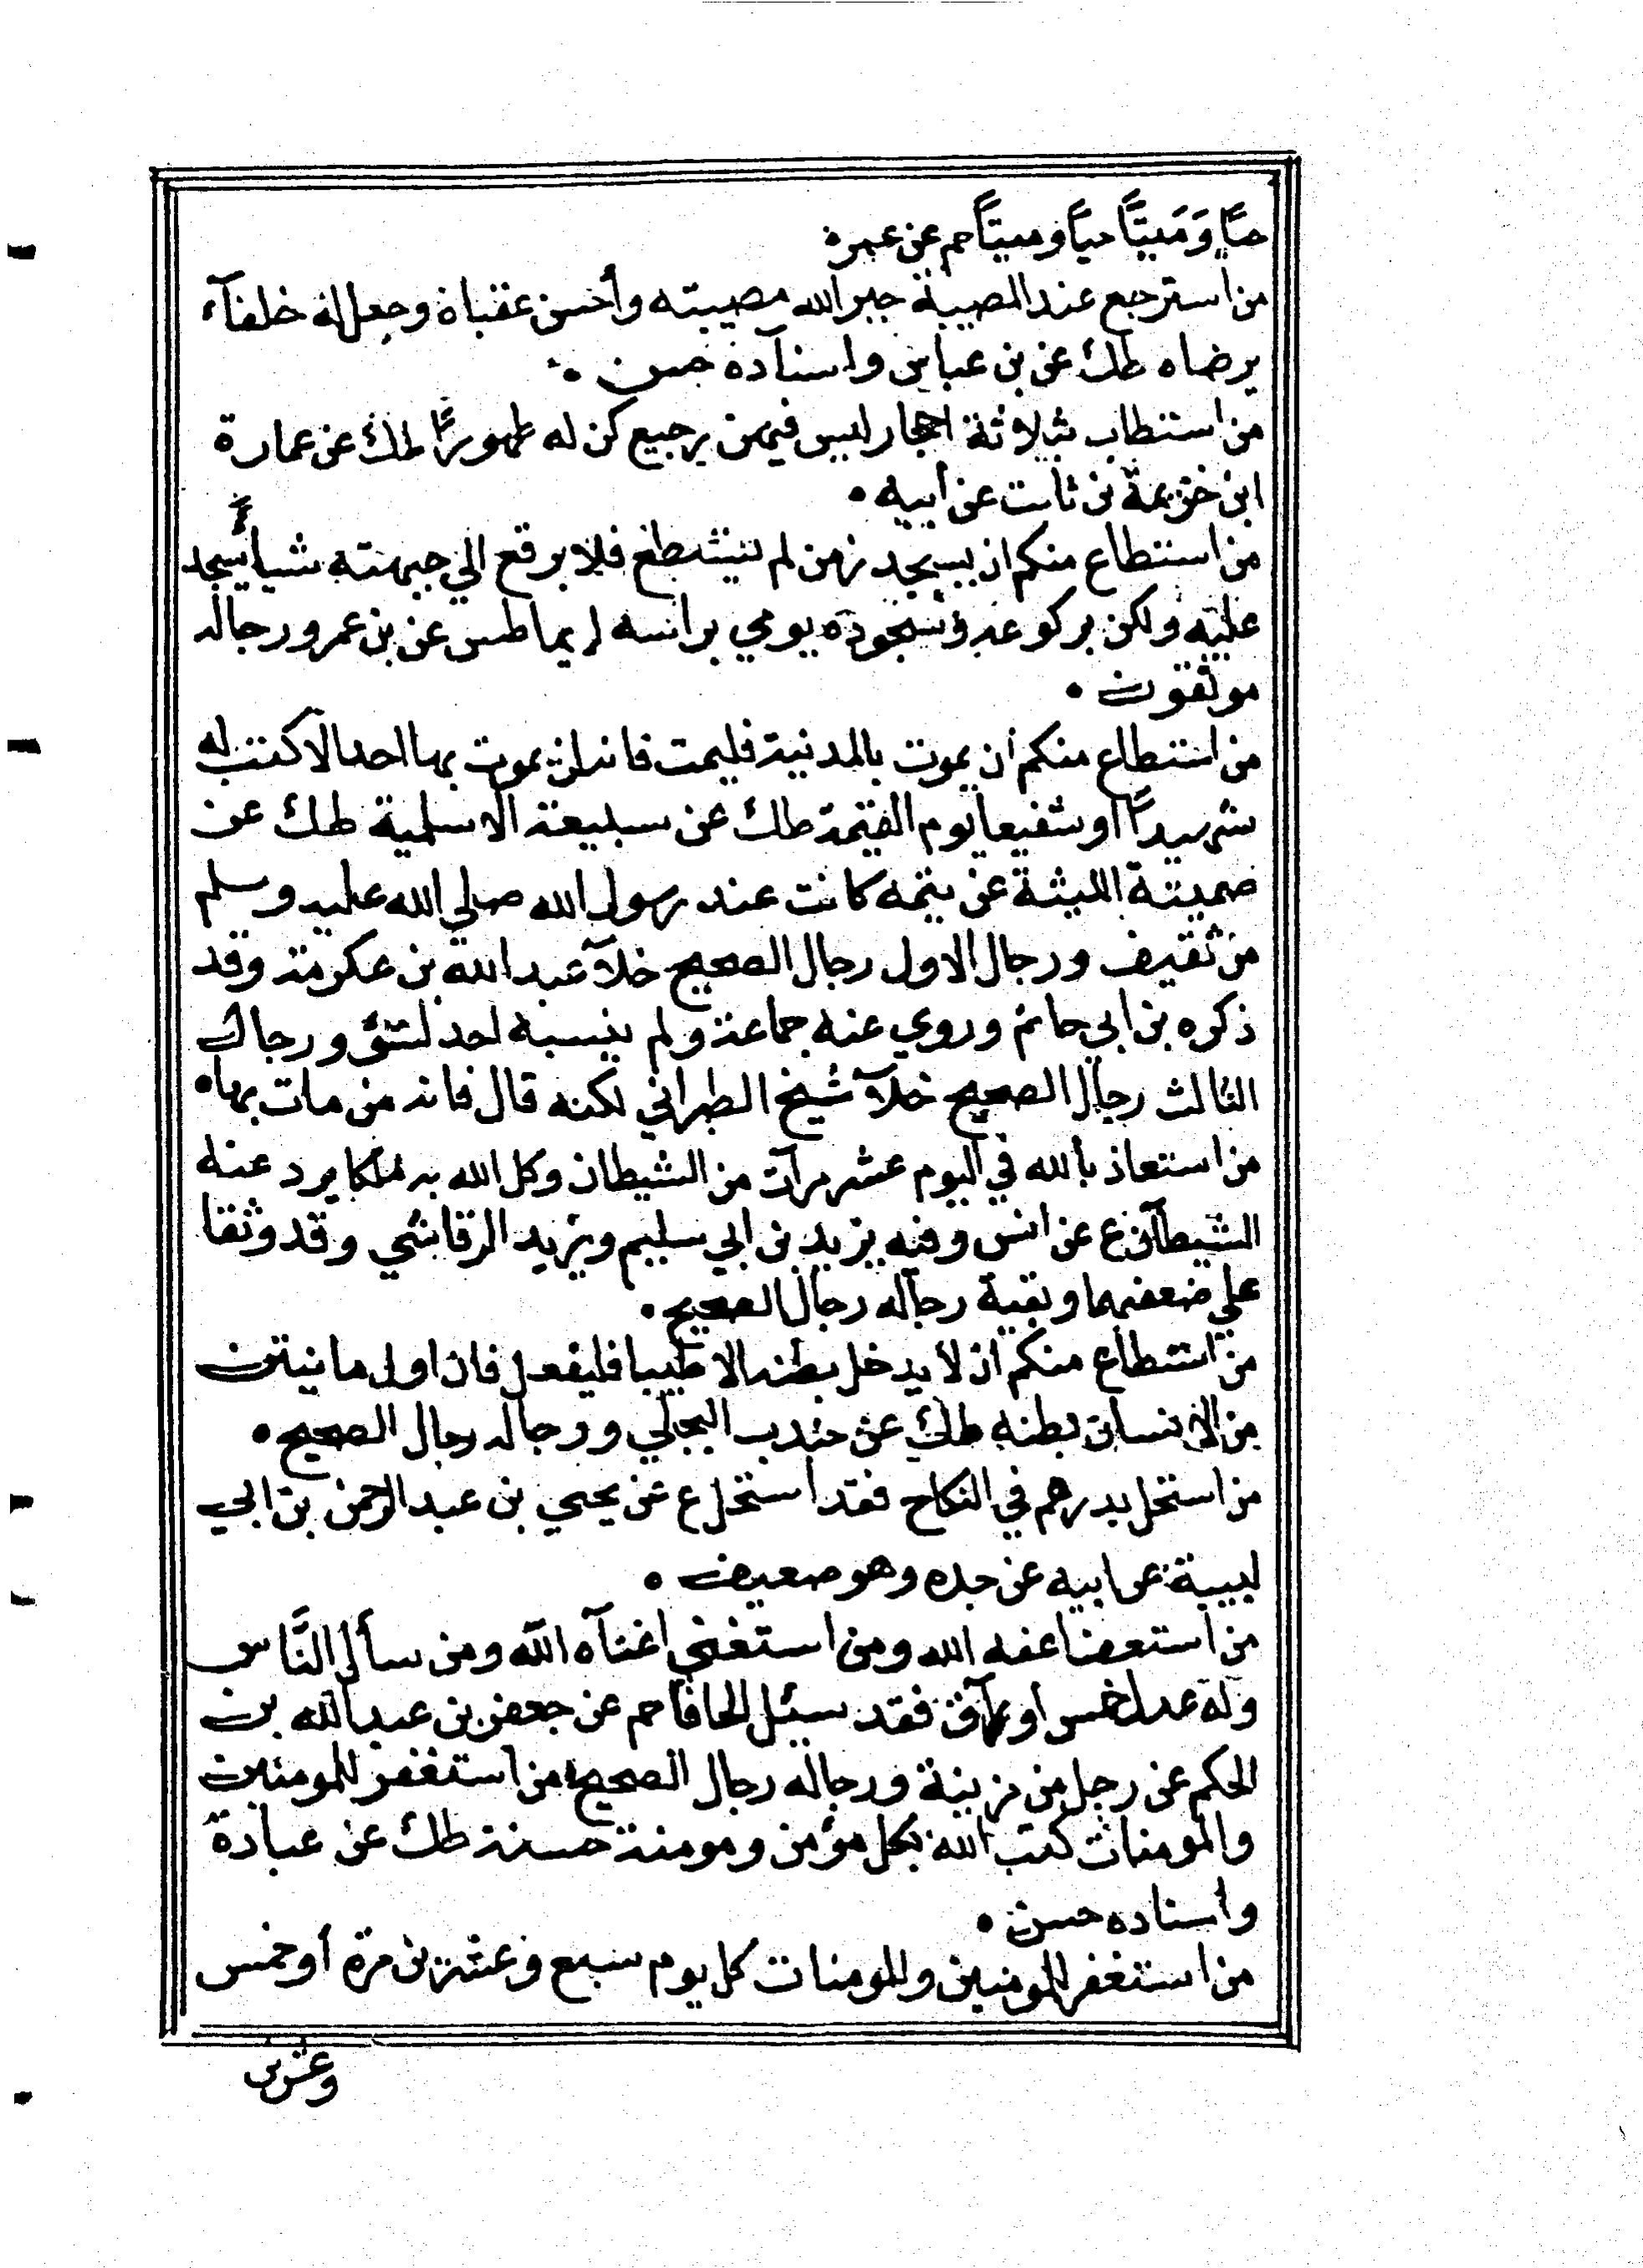 حيًّا وَمَيتًّا حياً وميتاً حم عن عمره
من استرجع عند المصيبة جبر الله مصيبته وأحسن عقباه وجعل له خلفآء
يرضاه طك عن بن عباس واسنآده حسن •
من استطاب بثلاثة احجار ليس فيهن رجيع كن له طهورًا طك عن عمارة
ابن خزيمة بن ثابت عن أبيه •
من استطاع منكم ان يسجد ومن لم يستطع فلا يرفع الي جبهته شيأ يسجد
عليه ولكن بركوعه وسجوده يومي براسه ايما طس عن بن عمر ورجاله
موثقون •
من استطاع منكم أن يموت بالمدنية فليمت فانه لن يموت بها احد الا كنت له
شهيدًا او شفيعا يوم القيمة طك عن سبيعة الاسلمية طك عن
صميتة الليثة عن يتيمه كانت عند رسول الله صلي الله عليه وسلم
من ثقيف ورجال الاول رجال الصحيح خلآ عبد الله بن عكرمة وقد
ذكره بن ابي حاتم وروي عنه جماعة ولم ينسبه احد لشئ ورجال
الثالث رجال الصحيح خلآ شيخ الطبراني لكنه قال فانه من مات بها •
من استعاذ بالله في اليوم عشر مرآت من الشيطان وكل الله به ملكا يرد عنه
الشيطآن ع عن انس وفيه يزيد بن ابي سليم ويزيد الرقاشي وقد وثقا
علي ضعفهما وبقية رجآله رجال الصحيح •
من استطاع منكم ان لا يدخل بطنه الا طيبا فليفعل فان اول ما نيتن
من الانسان بطنه طك عن جندب البجلي ورجاله رجال الصحيح •
من استحل بدرهم في النكاح فقد استحل ع عن يحيي بن عبد الرحمن بن ابي
لبيبة عن ابيه عن جده وهو ضعيف •
من استعف اعفه الله ومن استغني اغنآه الله ومن سأل النَّاس
وله عدل خمس أواق فقد سيئل الحافا حم عن جعفر بن عبد الله بن
الحكم عن رجل من مزينة ورجاله رجال الصحيح من استغفر للمومنين
والمومنات كتب الله بكل مؤمن ومومنة حسنة طك عن عبادة
وأسناده حسن •
من استغفر للمومنين وللمومنات كل يوم سبع وعشرين مرة أو خمس
وعشرين